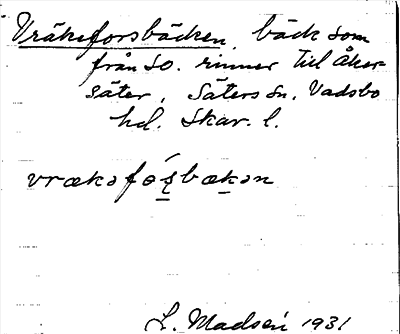 Vräkeforsbäcken, bäck som
från so. rinner till Åker-
säter, Säters sn, Vadsbo
hd. Skar. l.
vrækəfo̱ʂ́bæ̱kən
L. Madsén 1931